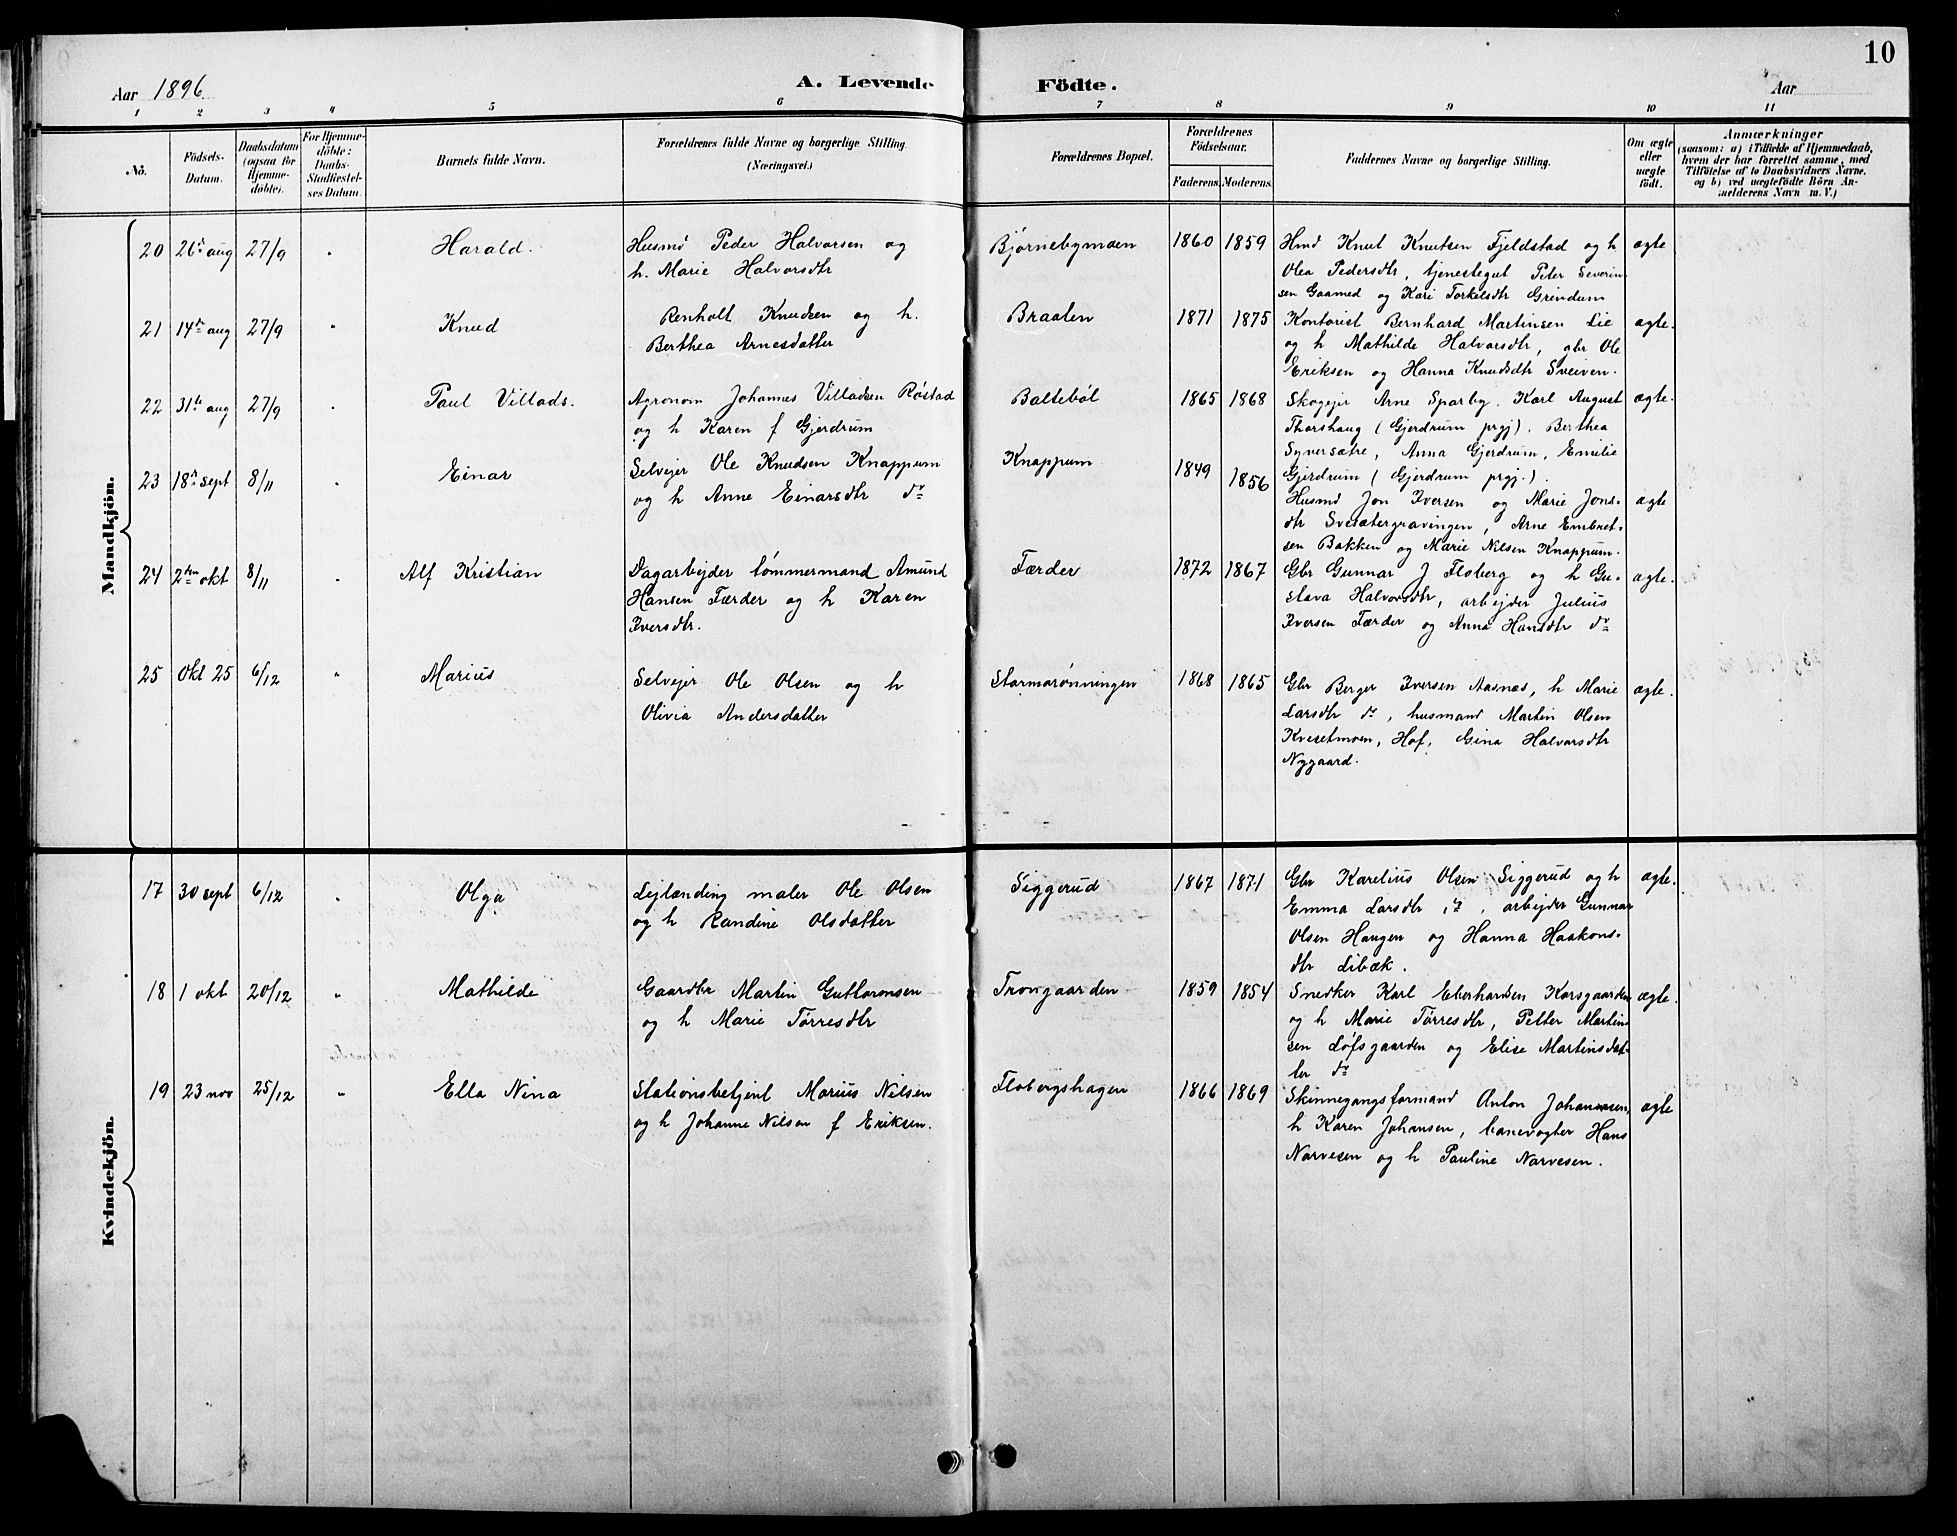 10
Aar 1896.
A. Levende Födte.
Aar
1 2 3 4 5 6 7 8 9 10 11
No.
Födsels-Datum.
Daabsdatum (ogsaa for Hjemme-döbte).
For Hjemme-döbte: Daabs-Stadfæstel-ses Datum.
Barnets fulde Navn.
Forældrenes fulde Navne og borgerlige Stilling.
(Næringsvei.)
Forældrenes Bopæl.
Forældrenes Födselsaar.
Faderens. Moderens.
Faddernes Navne og borgerlige Stilling.
Om ægte eller uægte födt.
Anmærkninger
(saasom: a) i Tilfælde af Hjemmedaab,
hvem der har forrettet samme, med
Tilföielse af to Daabsvidners Navne,
og b) ved uægtefödte Börn An-
melderens Navn m. V.)
Mandkjön.
20 26de aug 27/9 " Harald. Husmd Peder Halvorsen og
h. Marie Halvorsdtr
Bjørnebymden 1860 1859
Hmd Knut Knutsen Fjeldstad og h
Olea Pedersdtr, tjenestegut Peter Severin-
sen Gaamed og Kari Torkelsdtr Grindum
ægte
21 14de aug 27/9 " Knud Renholt Knudsen og h.
Berthea Arnesdatter
Braaten 1871 1875
Kontorist Bernhard Martinsen Lie
og h Mathilde Halvorsdtr, gbr Ole
Eriksen og Hanna Knudsdtr Sveiven.
ægte.
22 31te aug 27/9 " Paul Villads. Agronom Johannes Villadsen Røstad
og h Karen f Gjerdrum
Baltebøl 1865 1868
Skogejr Arne Sparby. Karl August
Thorshaug (Gjerdrum prgj). Berthea
Syversætre, Anna Gjerdrum, Emilie
Gjerdrum (Gjerdrum prgj.).
ægte.
23 18de sept 8/11 " Einar Selvejer Ole Knudsen Knappum
og h Anne Einarsdtr do
Knappum 1849 1856
Husmd Jon Iversen og Marie Jons-
dtr Svesætergravingen, Arne Embret-
sen Bakken og Marie Nilsen Knappum.
ægte
24 2den okt 8/11 " Alf Kristian Dagarbejder tømmermand Amund
Hansen Færder og h Karen
Iversdtr.
Færder 1872 1867
Gbr Gunnar J Floberg og h Gu-
stava Halvorsdtr, arbejder Julius
Iversen Færder og Anna Hansdtr do
ægte.
25 Okt 25 6/12 " Marius Selvejer Ole Olsen og h
Olivia Andersdatter
Starmorønningen 1868 1865
Gbr Berger Iversen Aasnæs, h Marie
Larsdtr do, husmand Martin Olsen
Kvesetmoen, Hof, Gina Halvorsdtr
Nygaard.
ægte.
Kvindekjön.
17 30 sept 6/12 " Olga Lejlænding maler Ole Olsen
og h Randine Olsdatter
Siggerud 1867 1871
Gbr Karelius Olsen Siggerud og h
Emma Larsdtr do, arbejder Gunnar
Olsen Haugen og Hanna Haakons-
dtr Libæk.
ægte.
18 1 okt 20/12 " Mathilde Gaardbr Martin Guttormsen
og h Marie Tørresdtr
Trongaarden 1859 1854
Snedker Karl Eberhardsen Korsgaarden
og h Marie Tørresdtr, Petter Martin-
sen Løfsgaarden og Elise Martinsdat-
ter do
ægte.
19 23 nov 25/12 " Ella Nina Stationsbetjent Marius Nilsen
og h Johanne Nilsen f Eriksen.
Flobergshagen 1866 1869
Skinnegangsformand Anton Johansen,
h Karen Johansen, banevogter Hans
Narvesen og h Pauline Narvesen.
ægte